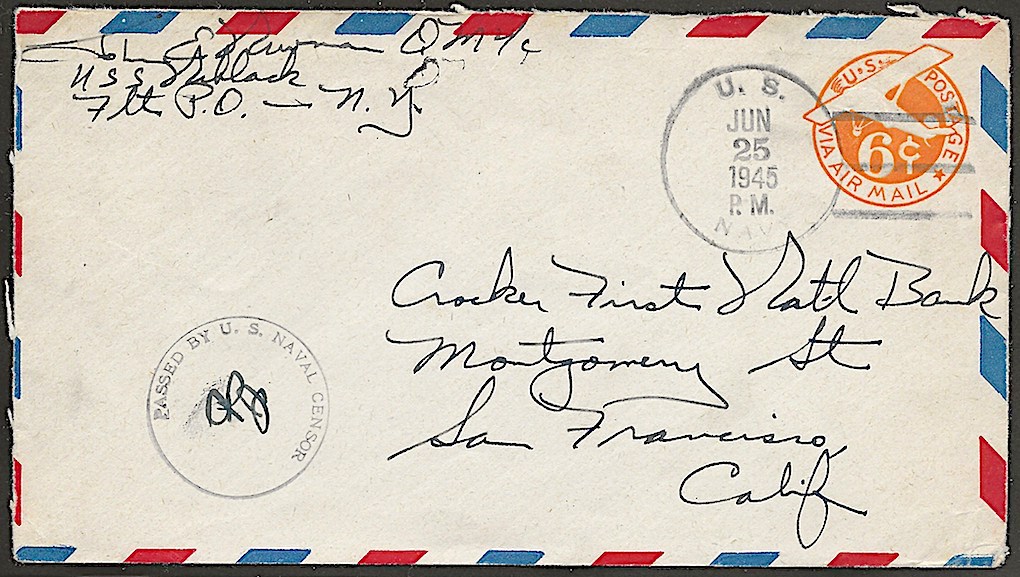 QM 1/c
USS Niblack
Flt P.O. — N.Y.
U. S.
JUN
25
1945
P. M.
NAVY
U.S. POSTAGE
6¢
VIA AIR MAIL
Crocker First Natl Bank
Montgomery St
San Francisco,
Calif
PASSED BY U. S. NAVAL CENSOR